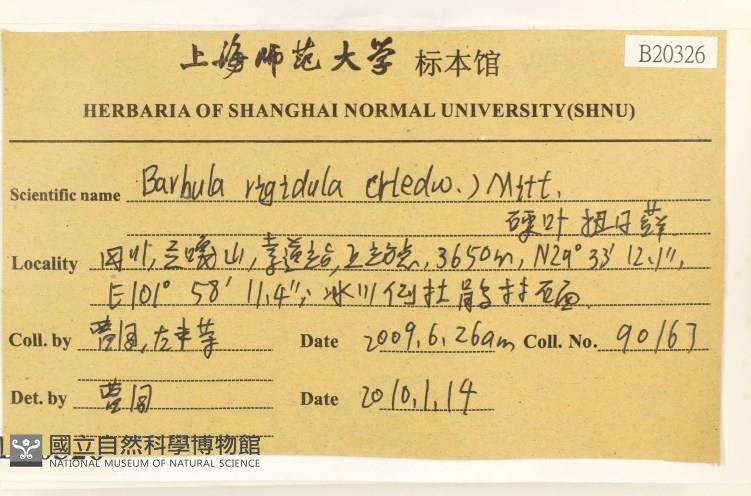 上海师范大学 标本馆
B20326
HERBARIA OF SHANGHAI NORMAL UNIVERSITY(SHNU)
Scientific name Barbula rigidula (Hedw.) Mitt.
硬叶扭口藓
Locality 四川, 贡嘎山, 3650m, N29° 33′ 12.1″,
E101° 58′ 11.4″; 冰川
Coll. by 曹同, 左本荣 Date 2009.6.26am Coll. No. 90163
Det. by 曹同 Date 2010.1.14
國立自然科學博物館
NATIONAL MUSEUM OF NATURAL SCIENCE